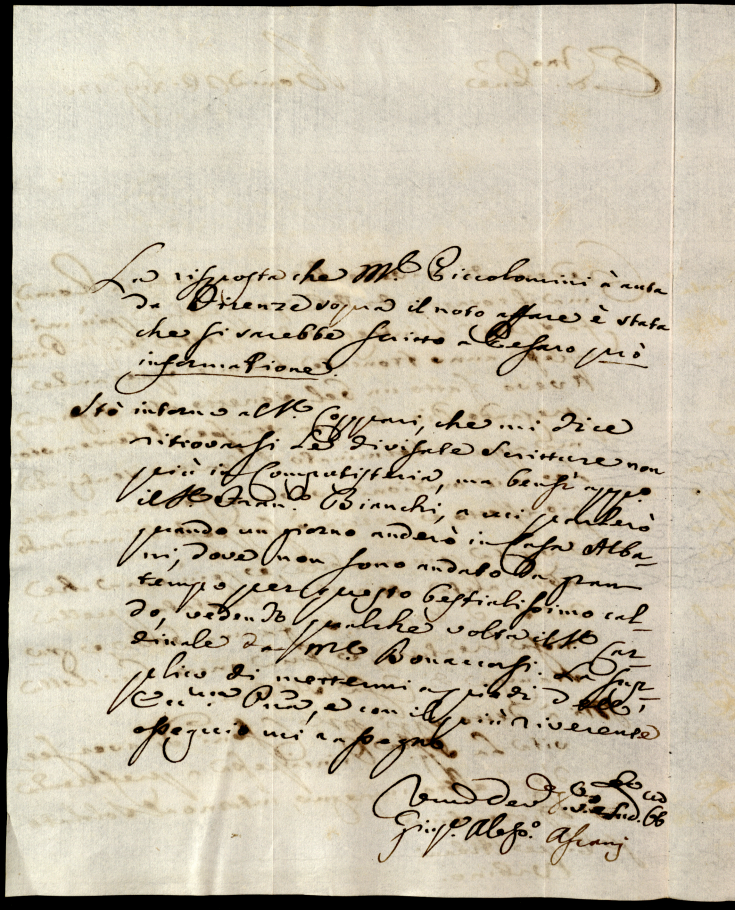 La risposta che Mr. Piccolomini à auta
da Firenze sopra il noto affare è stata
che si sarebbe scritto a Pesaro prò
informatione.
Stò intorno al Sr. Coppari, che mi dice
ritrovarsi le divisate scritture non
più in Computisteria, ma bensì appo.
il Sr. Franco. Bianchi, a cui parlerò
quando un giorno anderò in Casa Alba-
ni, dove non sono andato da gran
tempo per questo bestialissimo cal-
do, vedendo qualche volta il Sr. Car-
dinale da Mr. Bonaccorsi. La sup-
plico di mettermi a piedi dell'
Eccma. Pna., e con il più riverente
ossequio mi rassegno
Giusp. Alesso. Ascanj